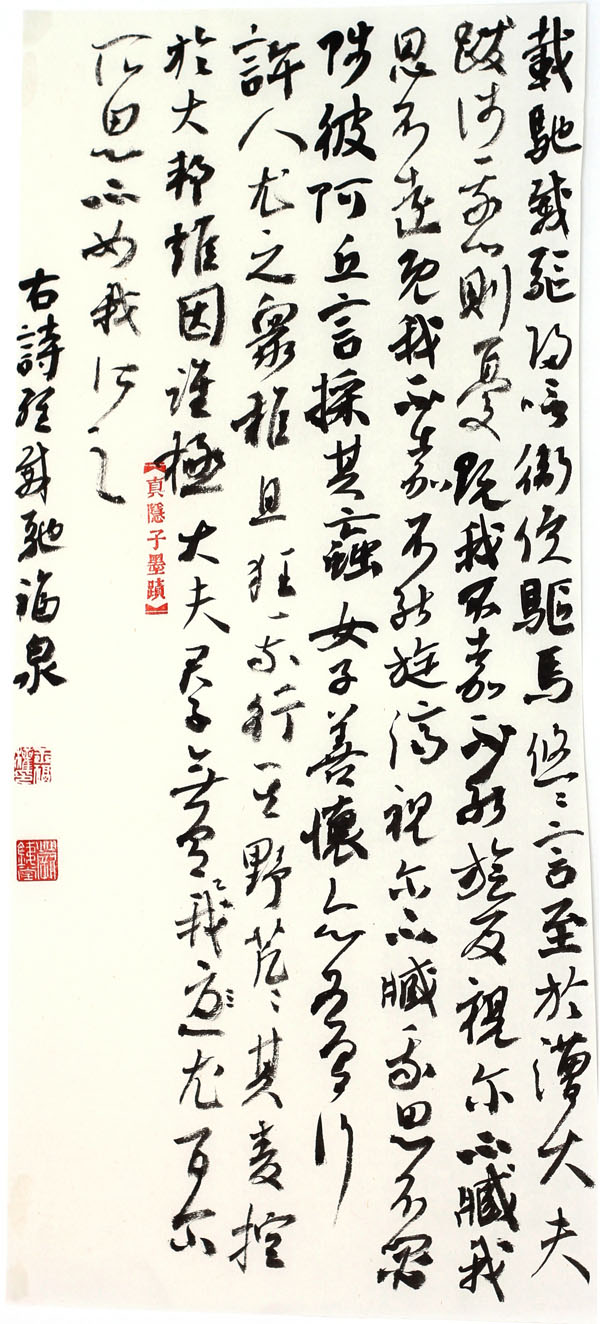 載馳載驅歸唁衛侯驅馬悠〻言至於漕大夫
跋涉我心則憂既我不嘉不能旋反視尔不臧我
思不遠既我不嘉不能旋濟視尔不臧我思不閟
陟彼阿丘言採其蝱女子善懷亦各有行
許人尤之衆稚且狂我行其野芃〻其麥控
於大邦誰因誰極大夫君子無我有尤百尔
所思不如我所之
右詩經載馳福泉
【真隱子墨蹟】